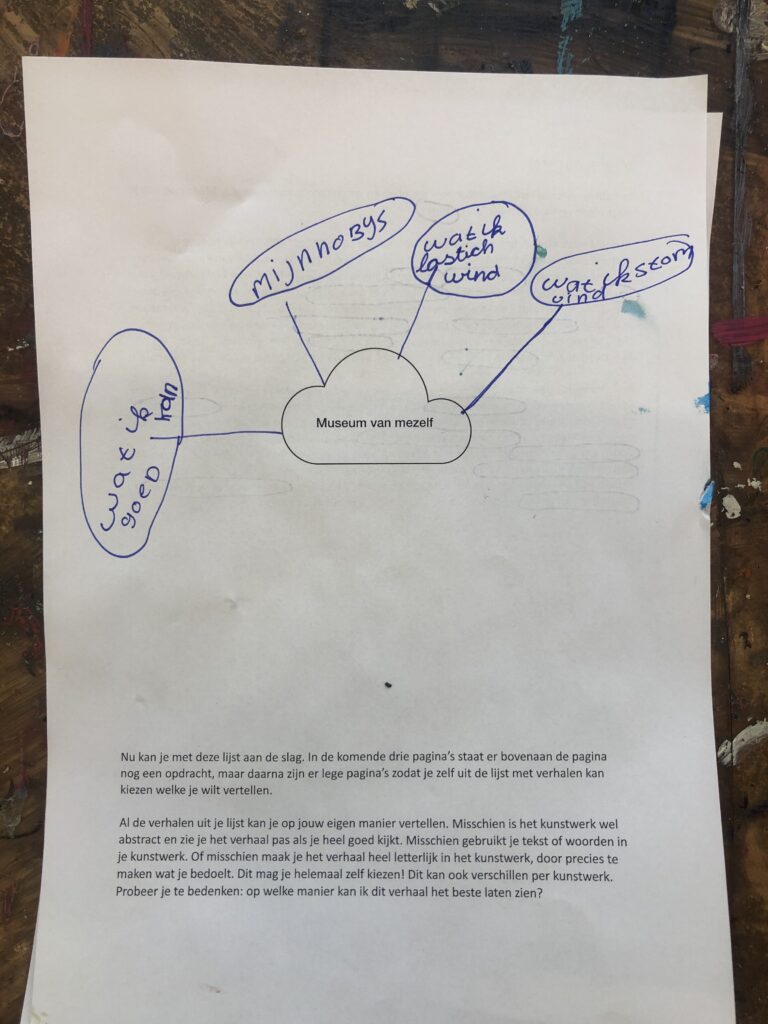 mijn hoBys
wat ik
lastich
wind
wat ik stom
vind
wat ik
goed
kan
Museum van mezelf
Nu kan je met deze lijst aan de slag. In de komende drie pagina’s staat er bovenaan de pagina
nog een opdracht, maar daarna zijn er lege pagina’s zodat je zelf uit de lijst met verhalen kan
kiezen welke je wilt vertellen.
Al de verhalen uit je lijst kan je op jouw eigen manier vertellen. Misschien is het kunstwerk wel
abstract en zie je het verhaal pas als je heel goed kijkt. Misschien gebruikt je tekst of woorden in
je kunstwerk. Of misschien maak je het verhaal heel letterlijk in het kunstwerk, door precies te
maken wat je bedoelt. Dit mag je helemaal zelf kiezen! Dit kan ook verschillen per kunstwerk.
Probeer je te bedenken: op welke manier kan ik dit verhaal het beste laten zien?